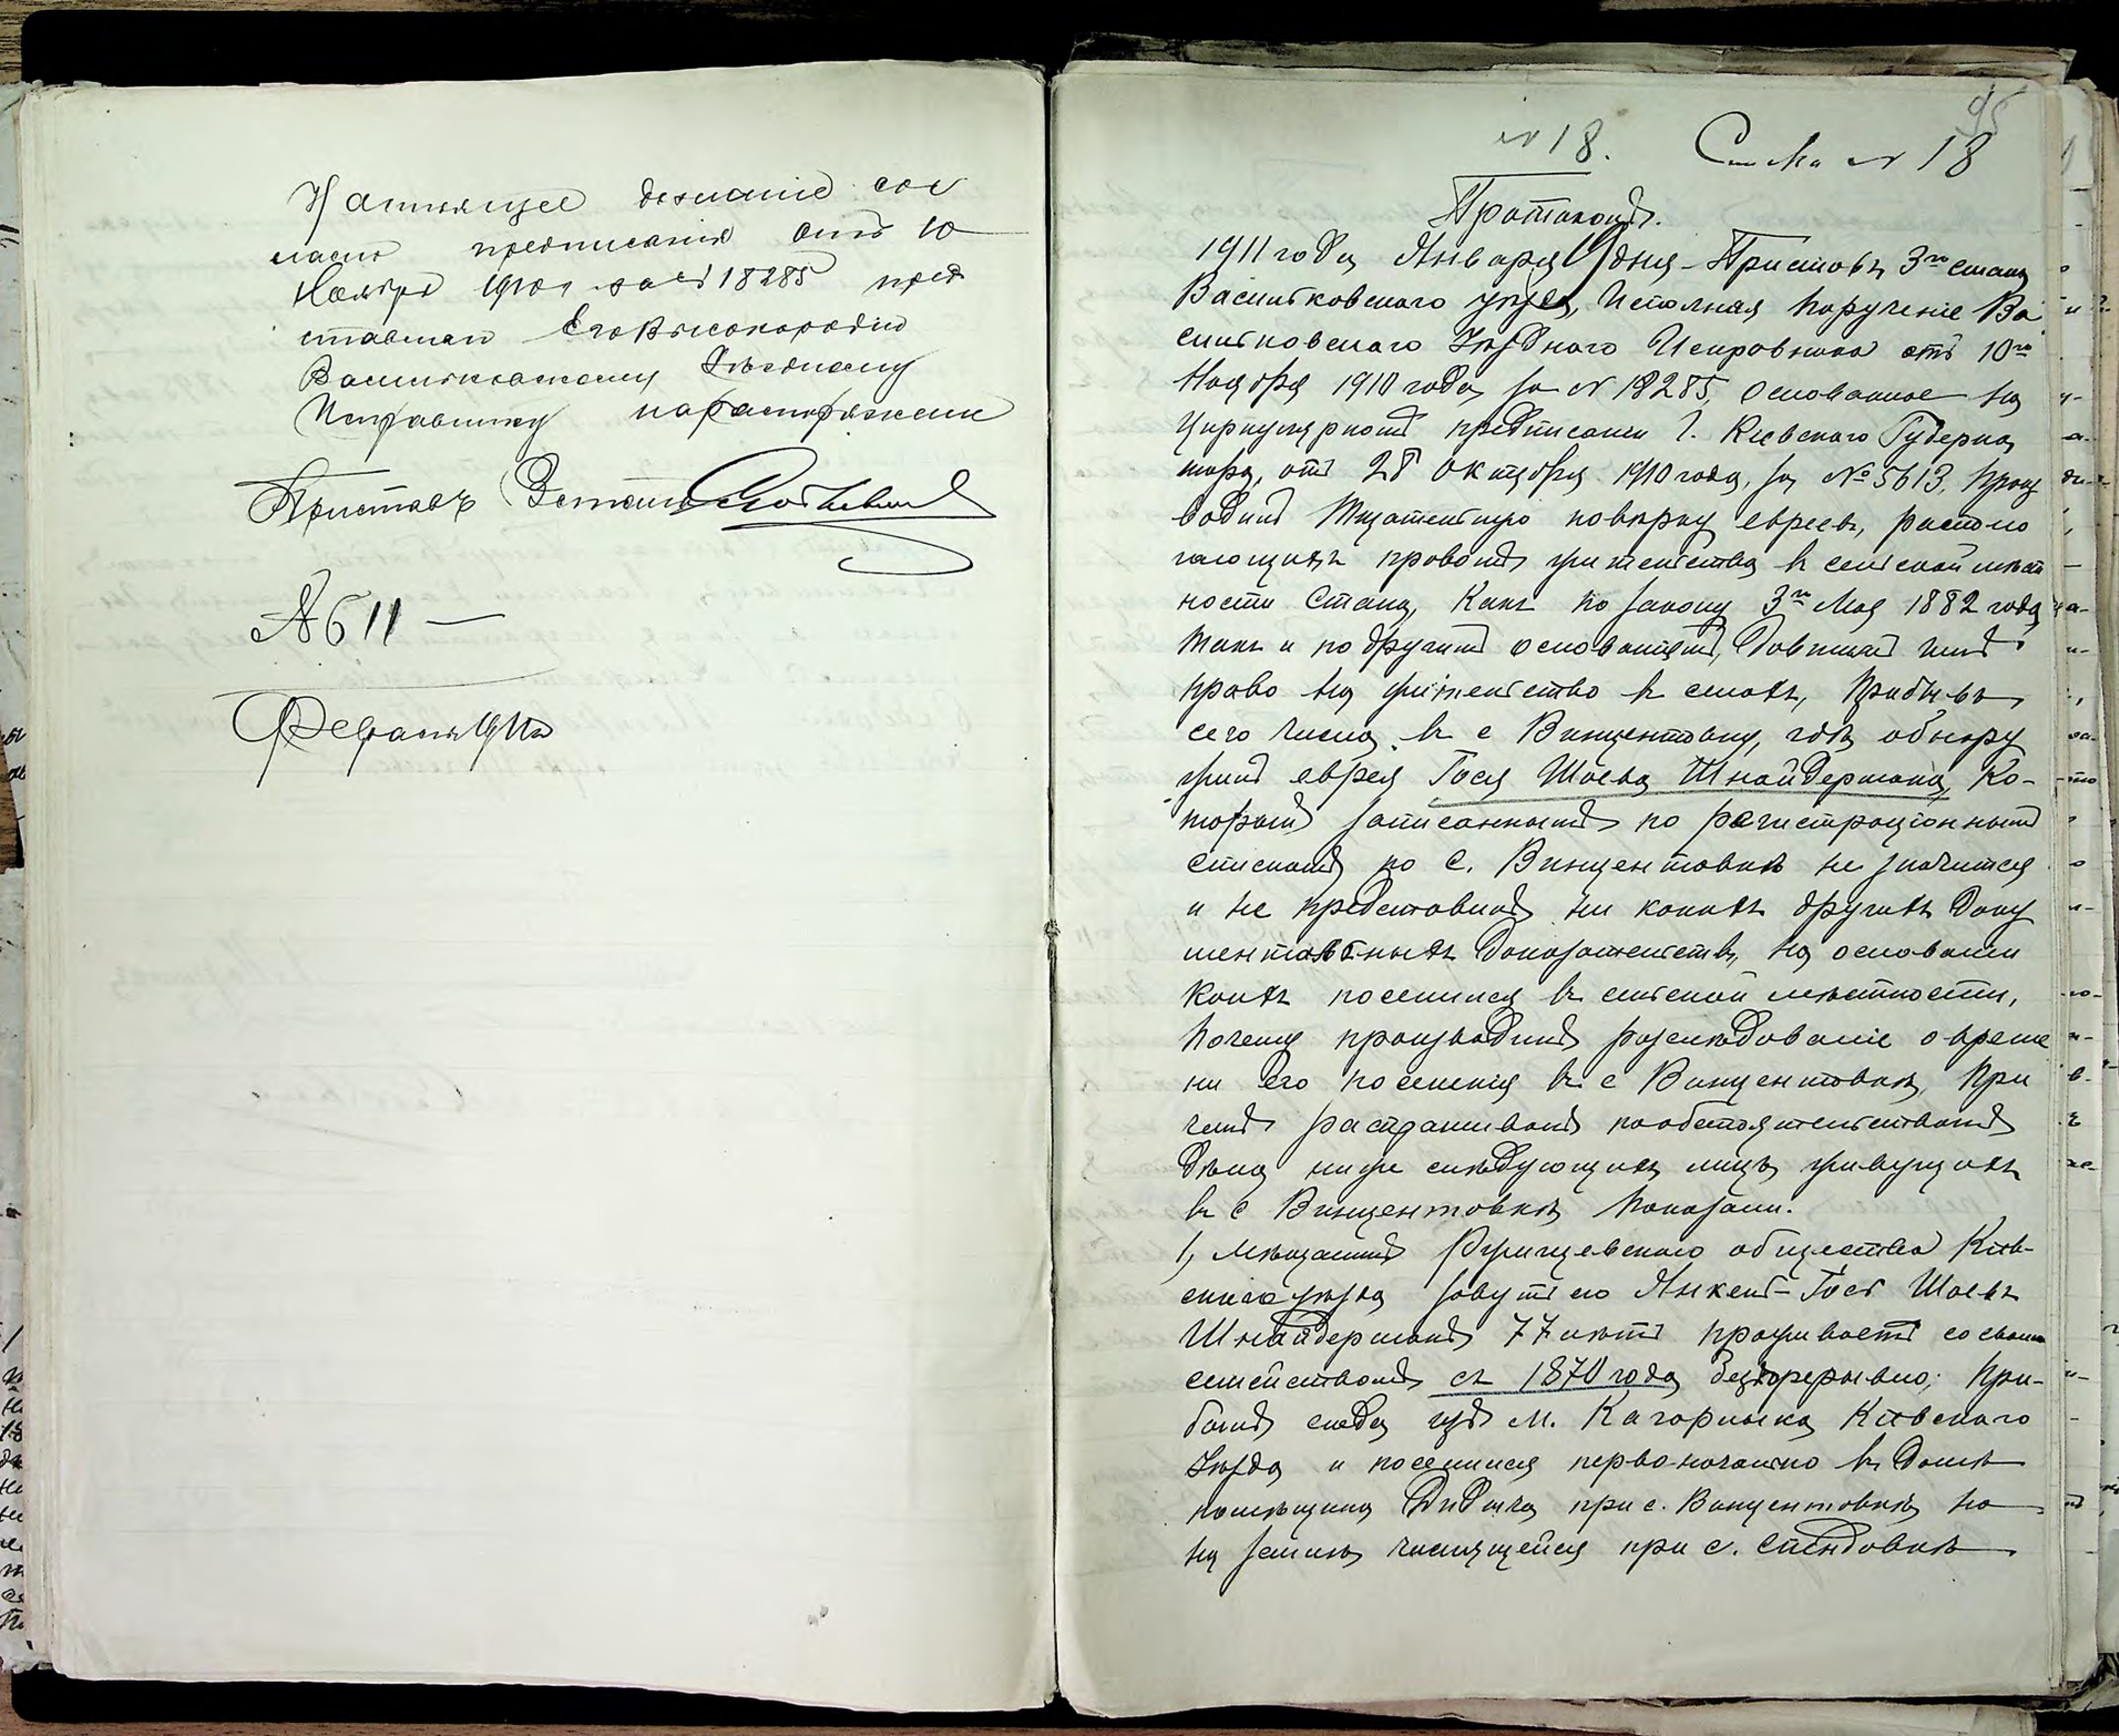 Настоящее дознаніе сог
ласно предписанія отъ 10
Ноября 1910 г за № 18285 пред
ставляю Его Высокородію
Васильковскому Уѣздному
Исправнику на распоряженіе
Приставъ 3 стана
№ 611
Февраля 1911 г
95
№ 18. Ст № 18
Протоколъ.
1911 года Января 9 дня Приставъ 3го стана
Васильковскаго уѣзда, Исполняя порученіе Ва
сильковскаго Уѣзднаго Исправника отъ 10го
Ноября 1910 года за № 18285, основанное на
Циркулярномъ предписаніи Г. Кіевскаго Губерна
тора, отъ 28 Октября 1910 года, за № 5613, произ
водилъ тщательную повѣрку евреевъ, распола
гающихъ правомъ жительства въ сельской мѣст
ности стана, какъ по закону 3го Мая 1882 года
такъ и по другимъ основаніямъ, дающимъ имъ
право на жительство въ селахъ, прибывъ
сего числа въ с Винцентовку, гдѣ обнару
жилъ еврея Госа Шаева Шнайдермана, ко-
торый записаннымъ по регистраціоннымъ
спискамъ по с. Винцентовкѣ не значится
и не представилъ ни какихъ другихъ доку
ментальныхъ доказательствъ, на основаніи
коихъ поселился въ сельской мѣстности,
почему производилъ разслѣдованіе о време
ни его поселенія въ с Винцентовкѣ, при
чемъ распрашивалъ по обстоятельствамъ
дѣла ниже слѣдующихъ лицъ живущихъ
въ с Винцентовкѣ показали.
1, Мѣщанинъ Ржищевскаго общества Кіев-
скаго уѣзда зовутъ его Янкель-Госъ Шаевъ
Шнайдерманъ 77 лѣтъ проживаетъ со своимъ
семействомъ съ 1870 года безпрерывно; при-
былъ сюда изъ м. Кагарлыка Кіевскаго
Уѣзда и поселился первоначально въ домѣ
помѣщика при с. Винцентовкѣ но
на землѣ числящейся при с.